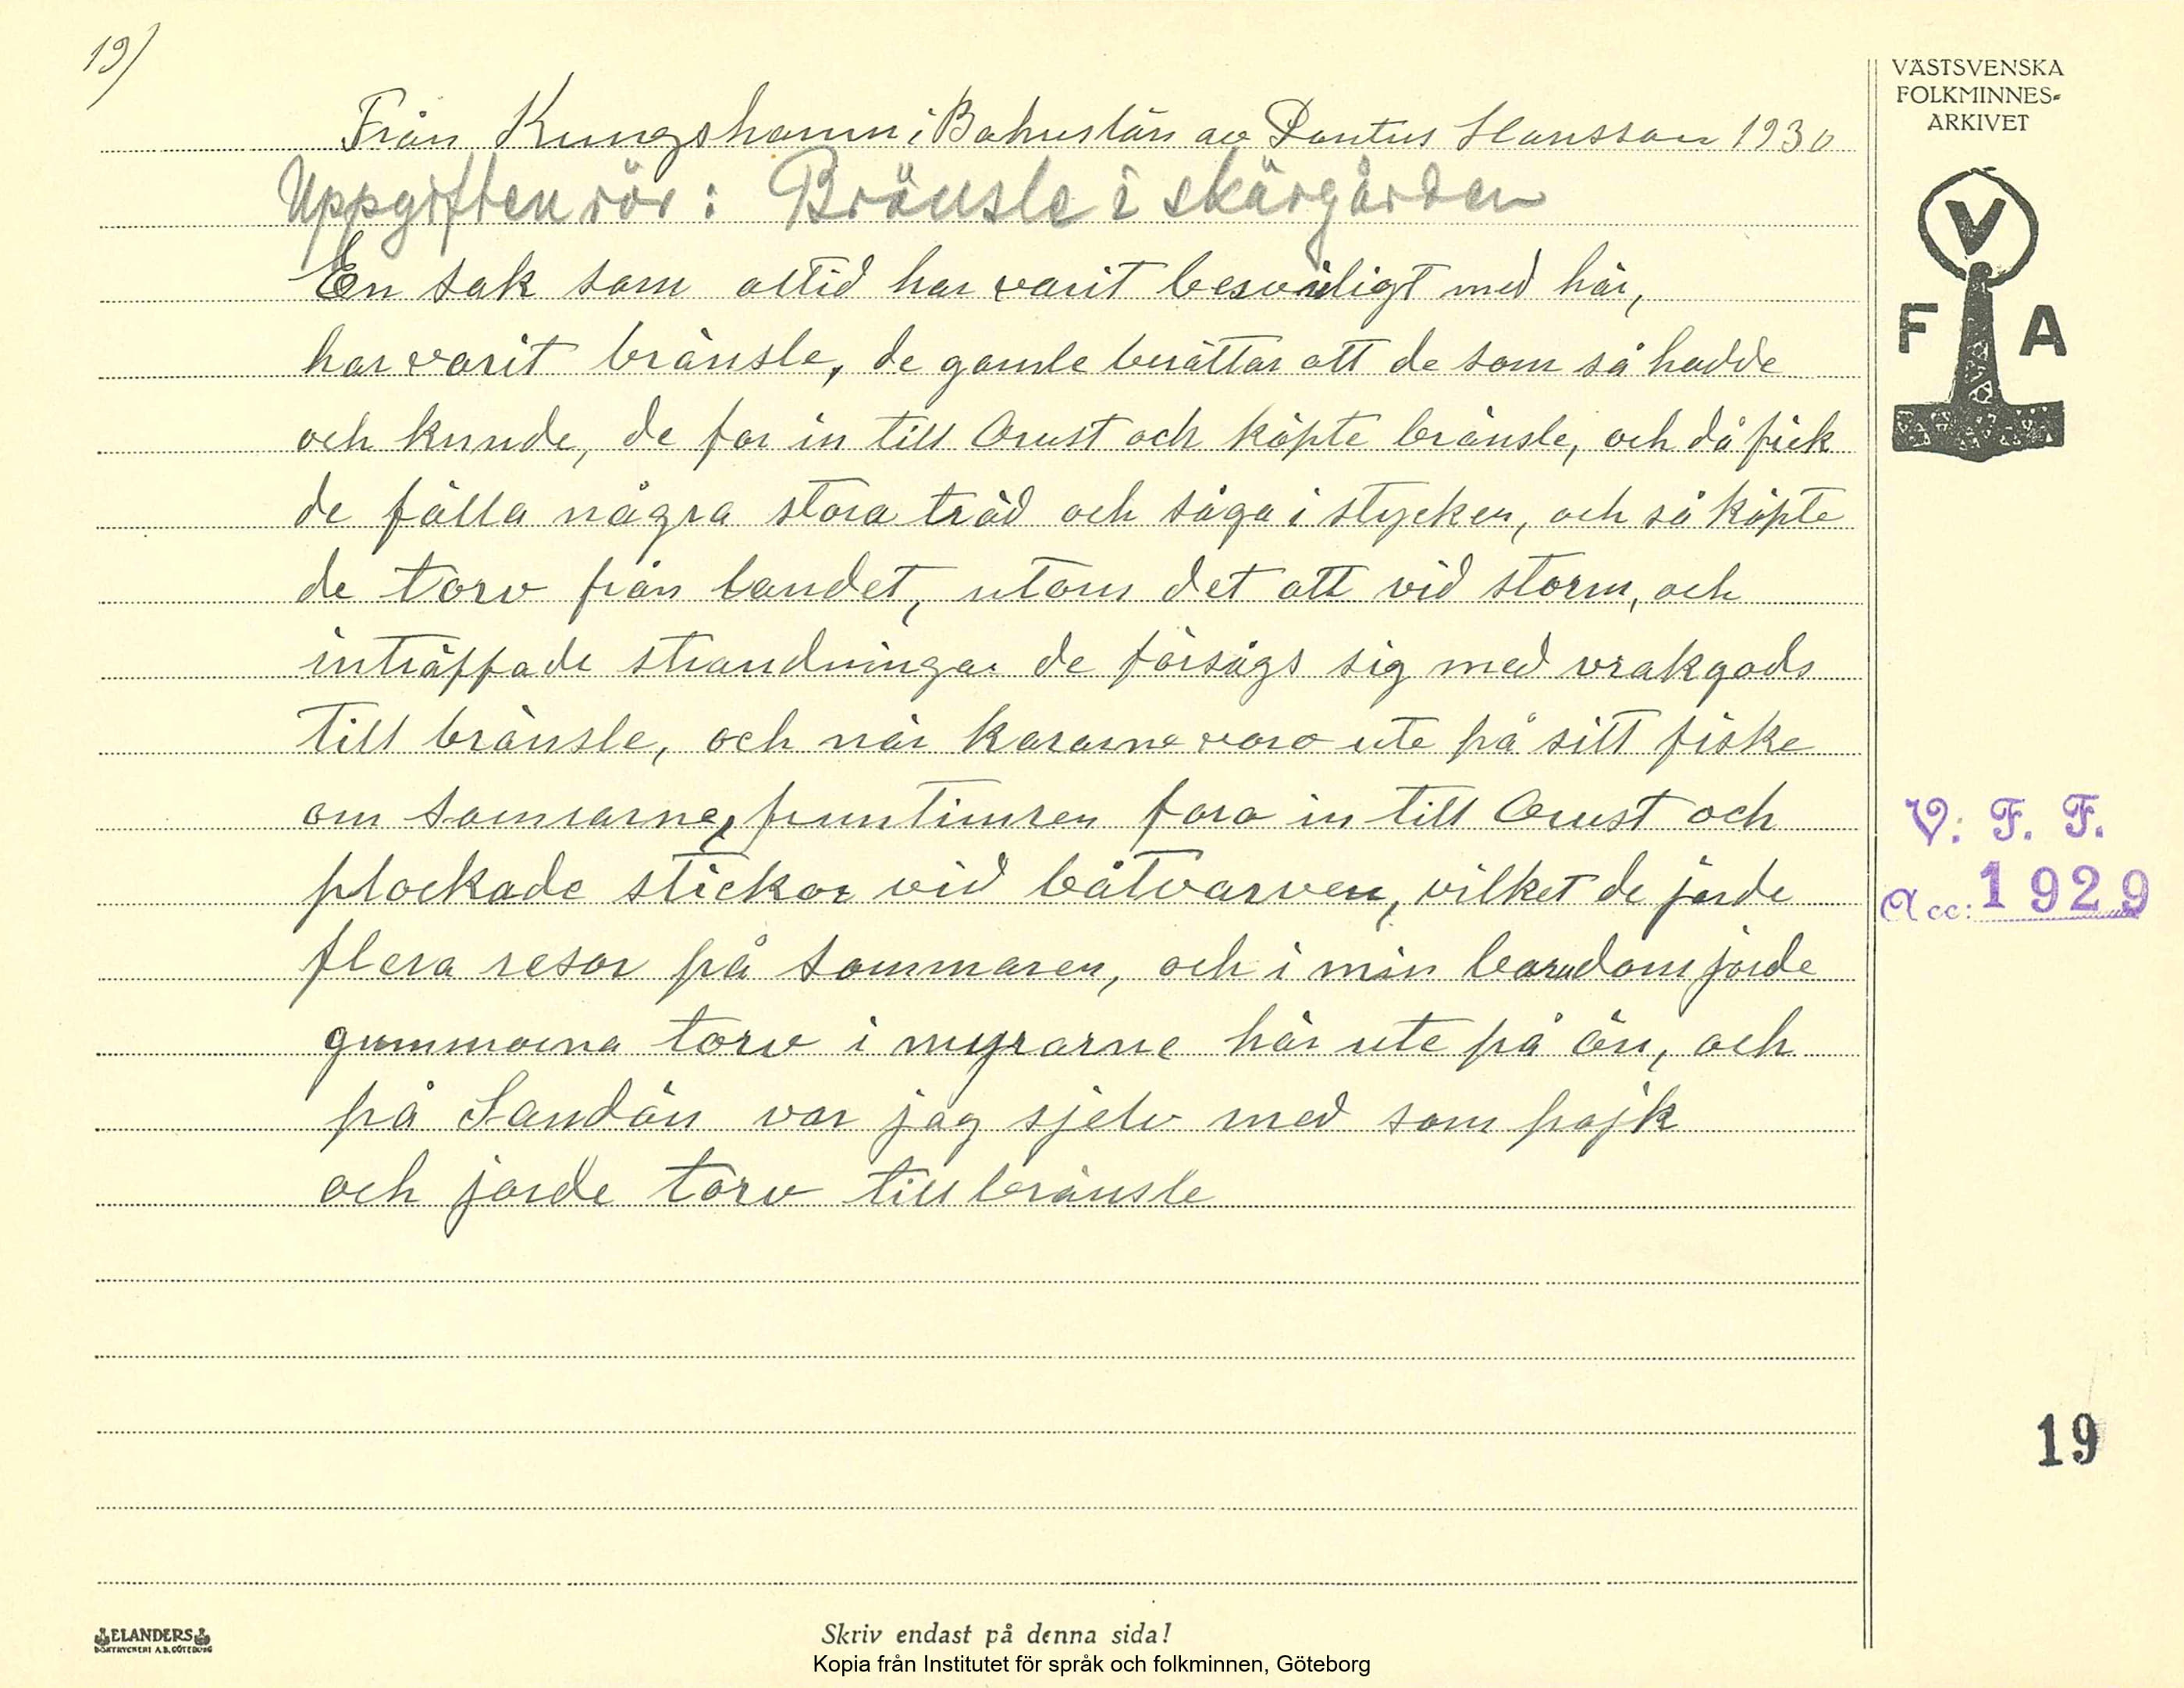 19)
VÄSTSVENSKA
FOLKMINNES-
ARKIVET
V
F A
Från Kungshamn i Bohuslän av Pontus Hansson 1930
Uppgiften rör: Bränsle i skärgården
En sak som altid har varit besvärligt med här,
har varit bränsle, de gamle berättar att de som så hadde
och kunde, de for in till Orust och köpte bränsle, och då fick
de fälla några stora träd och såga i stycken, och så köpte
de torv från landet, utom det att vid storm, och
inträffade strandningar de försågs sig med vrakgods
till bränsle, och när kararne voro ute på sitt fiske
om somrarne, fruntimren foro in till Orust och
plockade stickor vid båtvarven, vilket de jorde
flera resor på sommaren, och i min barndom jorde
gummorna torv i myrarne här ute på ön, och
på Sandön var jag sjelv med som pojk
och jorde torv till bränsle
V. F. F.
Acc: 1929
19
ELANDERS
BOKTRYCKERI A.B. GÖTEBORG
Skriv endast på denna sida!
Kopia från Institutet för språk och folkminnen, Göteborg